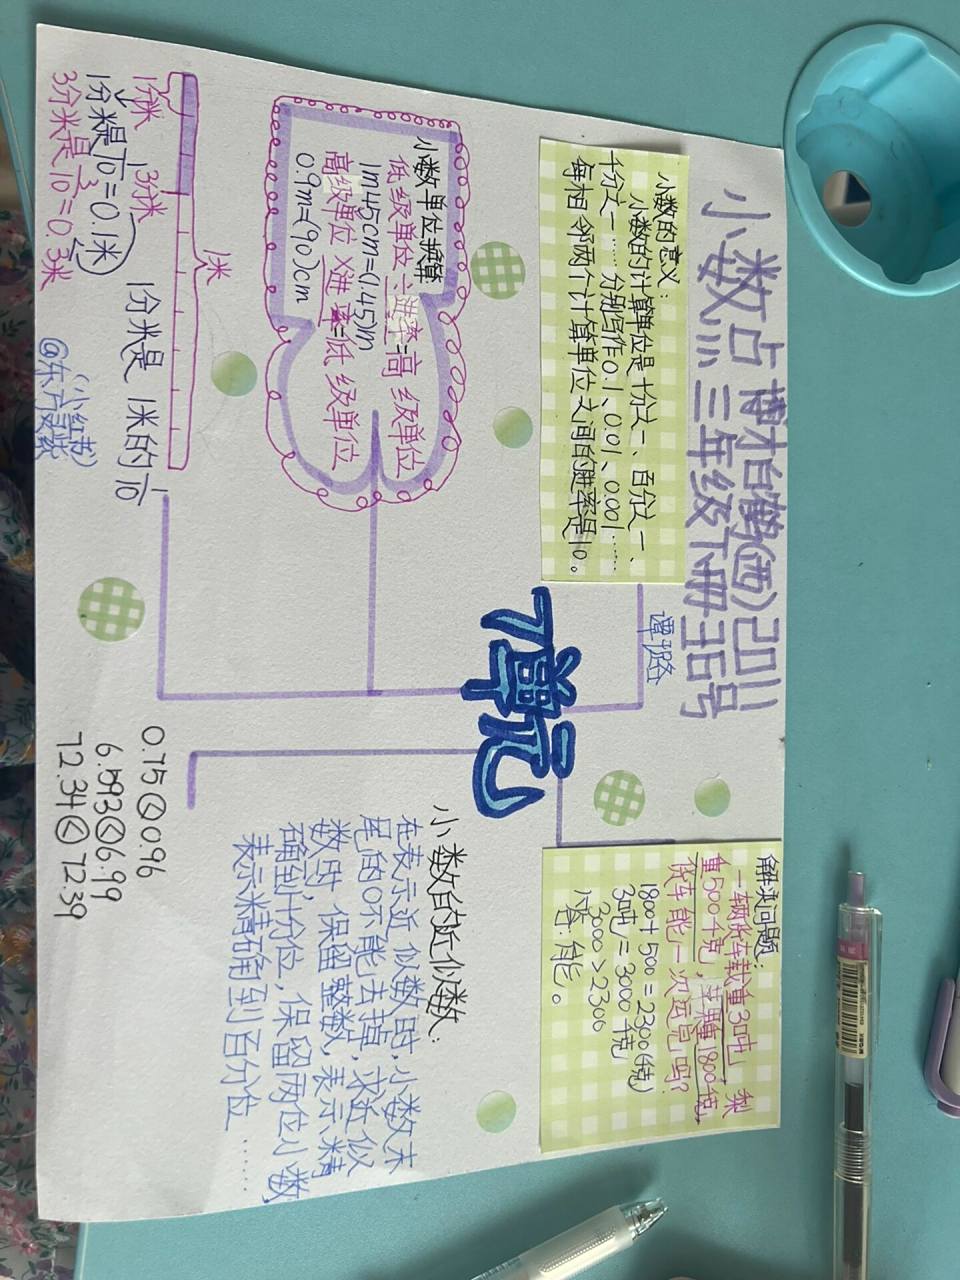 小数点 博才白鹤(西)2211
三年级下册 35号
小数的意义:
小数的计算单位是十分之一、百分之一、
千分之一……分别写作0.1、0.01、0.001……
每相邻两个计算单位之间的进率是10。
小数单位换算
低级单位÷进率=高级单位
1m45cm=(1.45)m
高级单位×进率=低级单位
0.9m=(90)cm
1米
1分米
3分米
1分米是1/10=0.1米
3分米是3/10=0.3米
1分米是1米的1/10
7单元
解决问题:
一辆货车载重3吨,梨
重500千克,苹果重1800千克,
货车能一次运完吗?
1800+500=2300(千克)
3吨=3000千克
3000>2300
答:能。
小数的近似数:
在表示近似数时,小数末
尾的0不能去掉,求近似
数时,保留整数,表示精
确到十分位,保留两位小数,
表示精确到百分位……
0.75<0.96
6.593<6.99
72.34<72.39